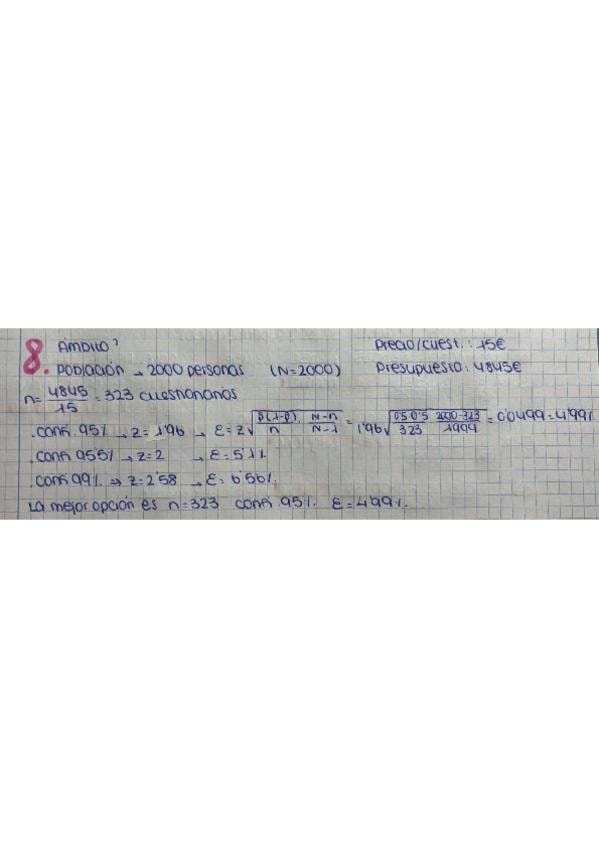 8. Ámbito? Precio/cuest.: 15€
Población → 2000 personas (N=2000) Presupuesto: 4845€
n= 4845/15 = 323 cuestionarios
. conf. 95% → z= 1'96 → ε= z √(p(1-p)/n · N-n/N-1) = 1'96 √(0'5·0'5/323 · 2000-323/1999) = 0'0499 = 4'99%
. conf. 95'5% → z= 2 → ε= 5'1%
. conf. 99% → z= 2'58 → ε= 6'56%.
La mejor opción es n=323 conf. 95%. ε= 4'99%.